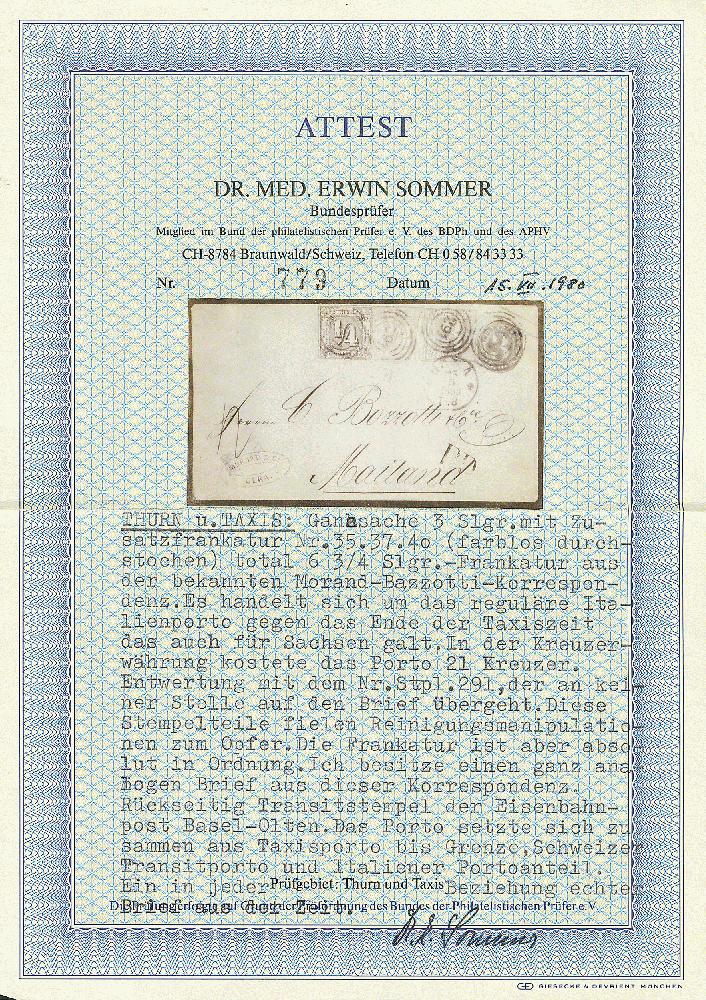 ATTEST
DR. MED. ERWIN SOMMER
Bundesprüfer
Mitglied im Bund der philatelistischen Prüfer e. V. des BDPh und des APHV
CH-8784 Braunwald/Schweiz, Telefon CH 0 58/84 33 33
Nr. 779 Datum 15. VII. 1980
1/4
Herrn C Bozzotti & Cie
Mailand
PD
THURN u.TAXIS: Ganzsache 3 Slgr.mit Zu-
satzfrankatur Nr.35.37.40 (farblos durch-
stochen) total 6 3/4 Slgr.-Frankatur aus
der bekannten Morand-Bazzotti-Korrespon-
denz.Es handelt sich um das reguläre Ita-
lienporto gegen das Ende der Taxiszeit
das auch für Sachsen galt.In der Kreuzer-
währung kostete das Porto 21 Kreuzer.
Entwertung mit dem Nr.Stpl.291,der an kei-
ner Stelle auf den Brief übergeht.Diese
Stempelteile fielen Reinigungsmanipulatio-
nen zum Opfer.Die Frankatur ist aber abso-
lut in Ordnung.Ich besitze einen ganz ana
logen Brief aus dieser Korrespondenz.
Rückseitig Transitstempel der Eisenbahn-
post Basel-Olten.Das Porto setzte sich zu
sammen aus Taxisporto bis Grenze,Schweizer
Transitporto und Italiener Portoanteil.
Ein in jeder Beziehung echter
Prüfgebiet: Thurn und Taxis
Brief aus der Zeit.
Die Prüfung erfolgte auf Grund der Prüfordnung des Bundes der Philatelistischen Prüfer e.V.
Dr. E. Sommer
GIESECKE & DEVRIENT MÜNCHEN